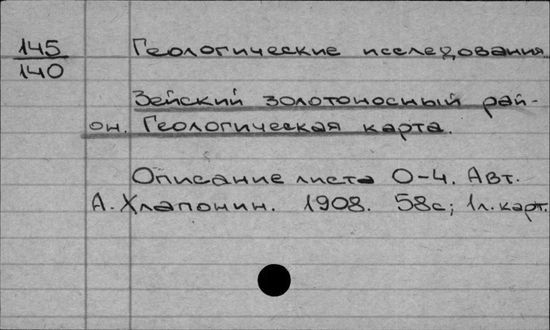 145 Геологические исследования
140
Зейский золотоносный рай-
он. Геологическая карта.
Описание листа О-4. Авт.
А. Хлапонин. 1908. 58с; 1л. карт.